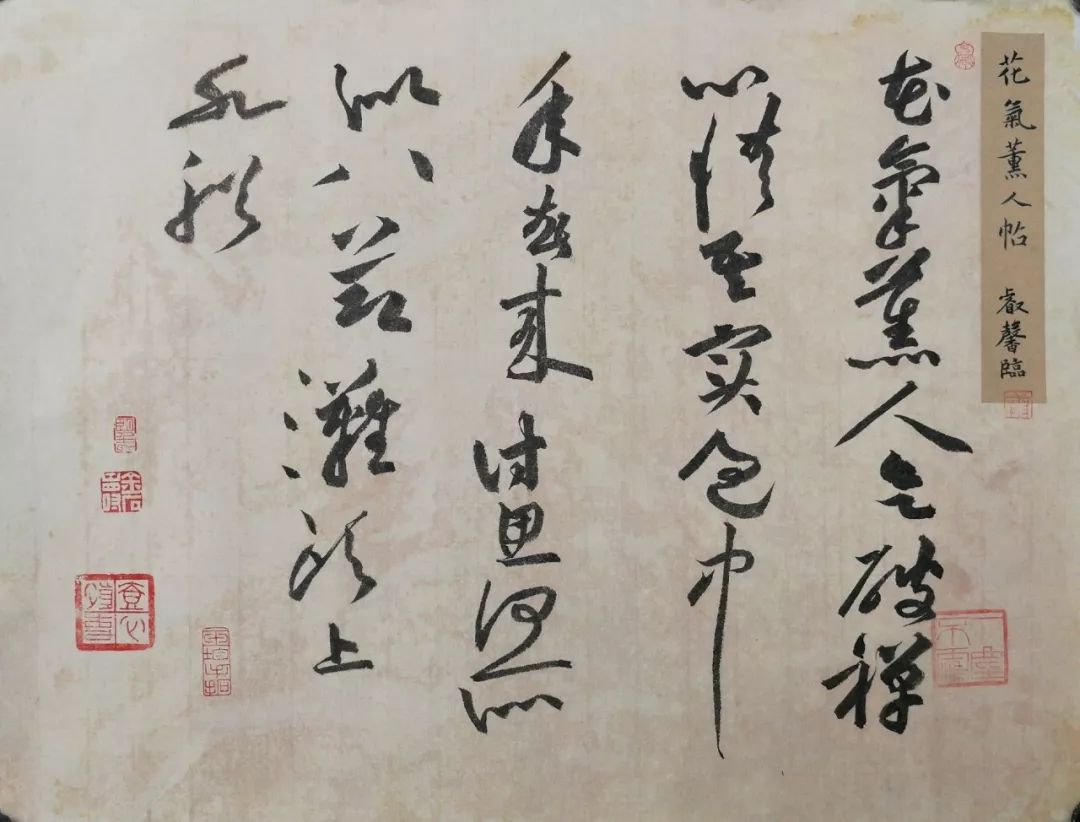 花氣薰人帖 叡馨臨
花氣薰人欲破禪
心情其實過中
年春來詩思何所
似八節灘頭上
水船